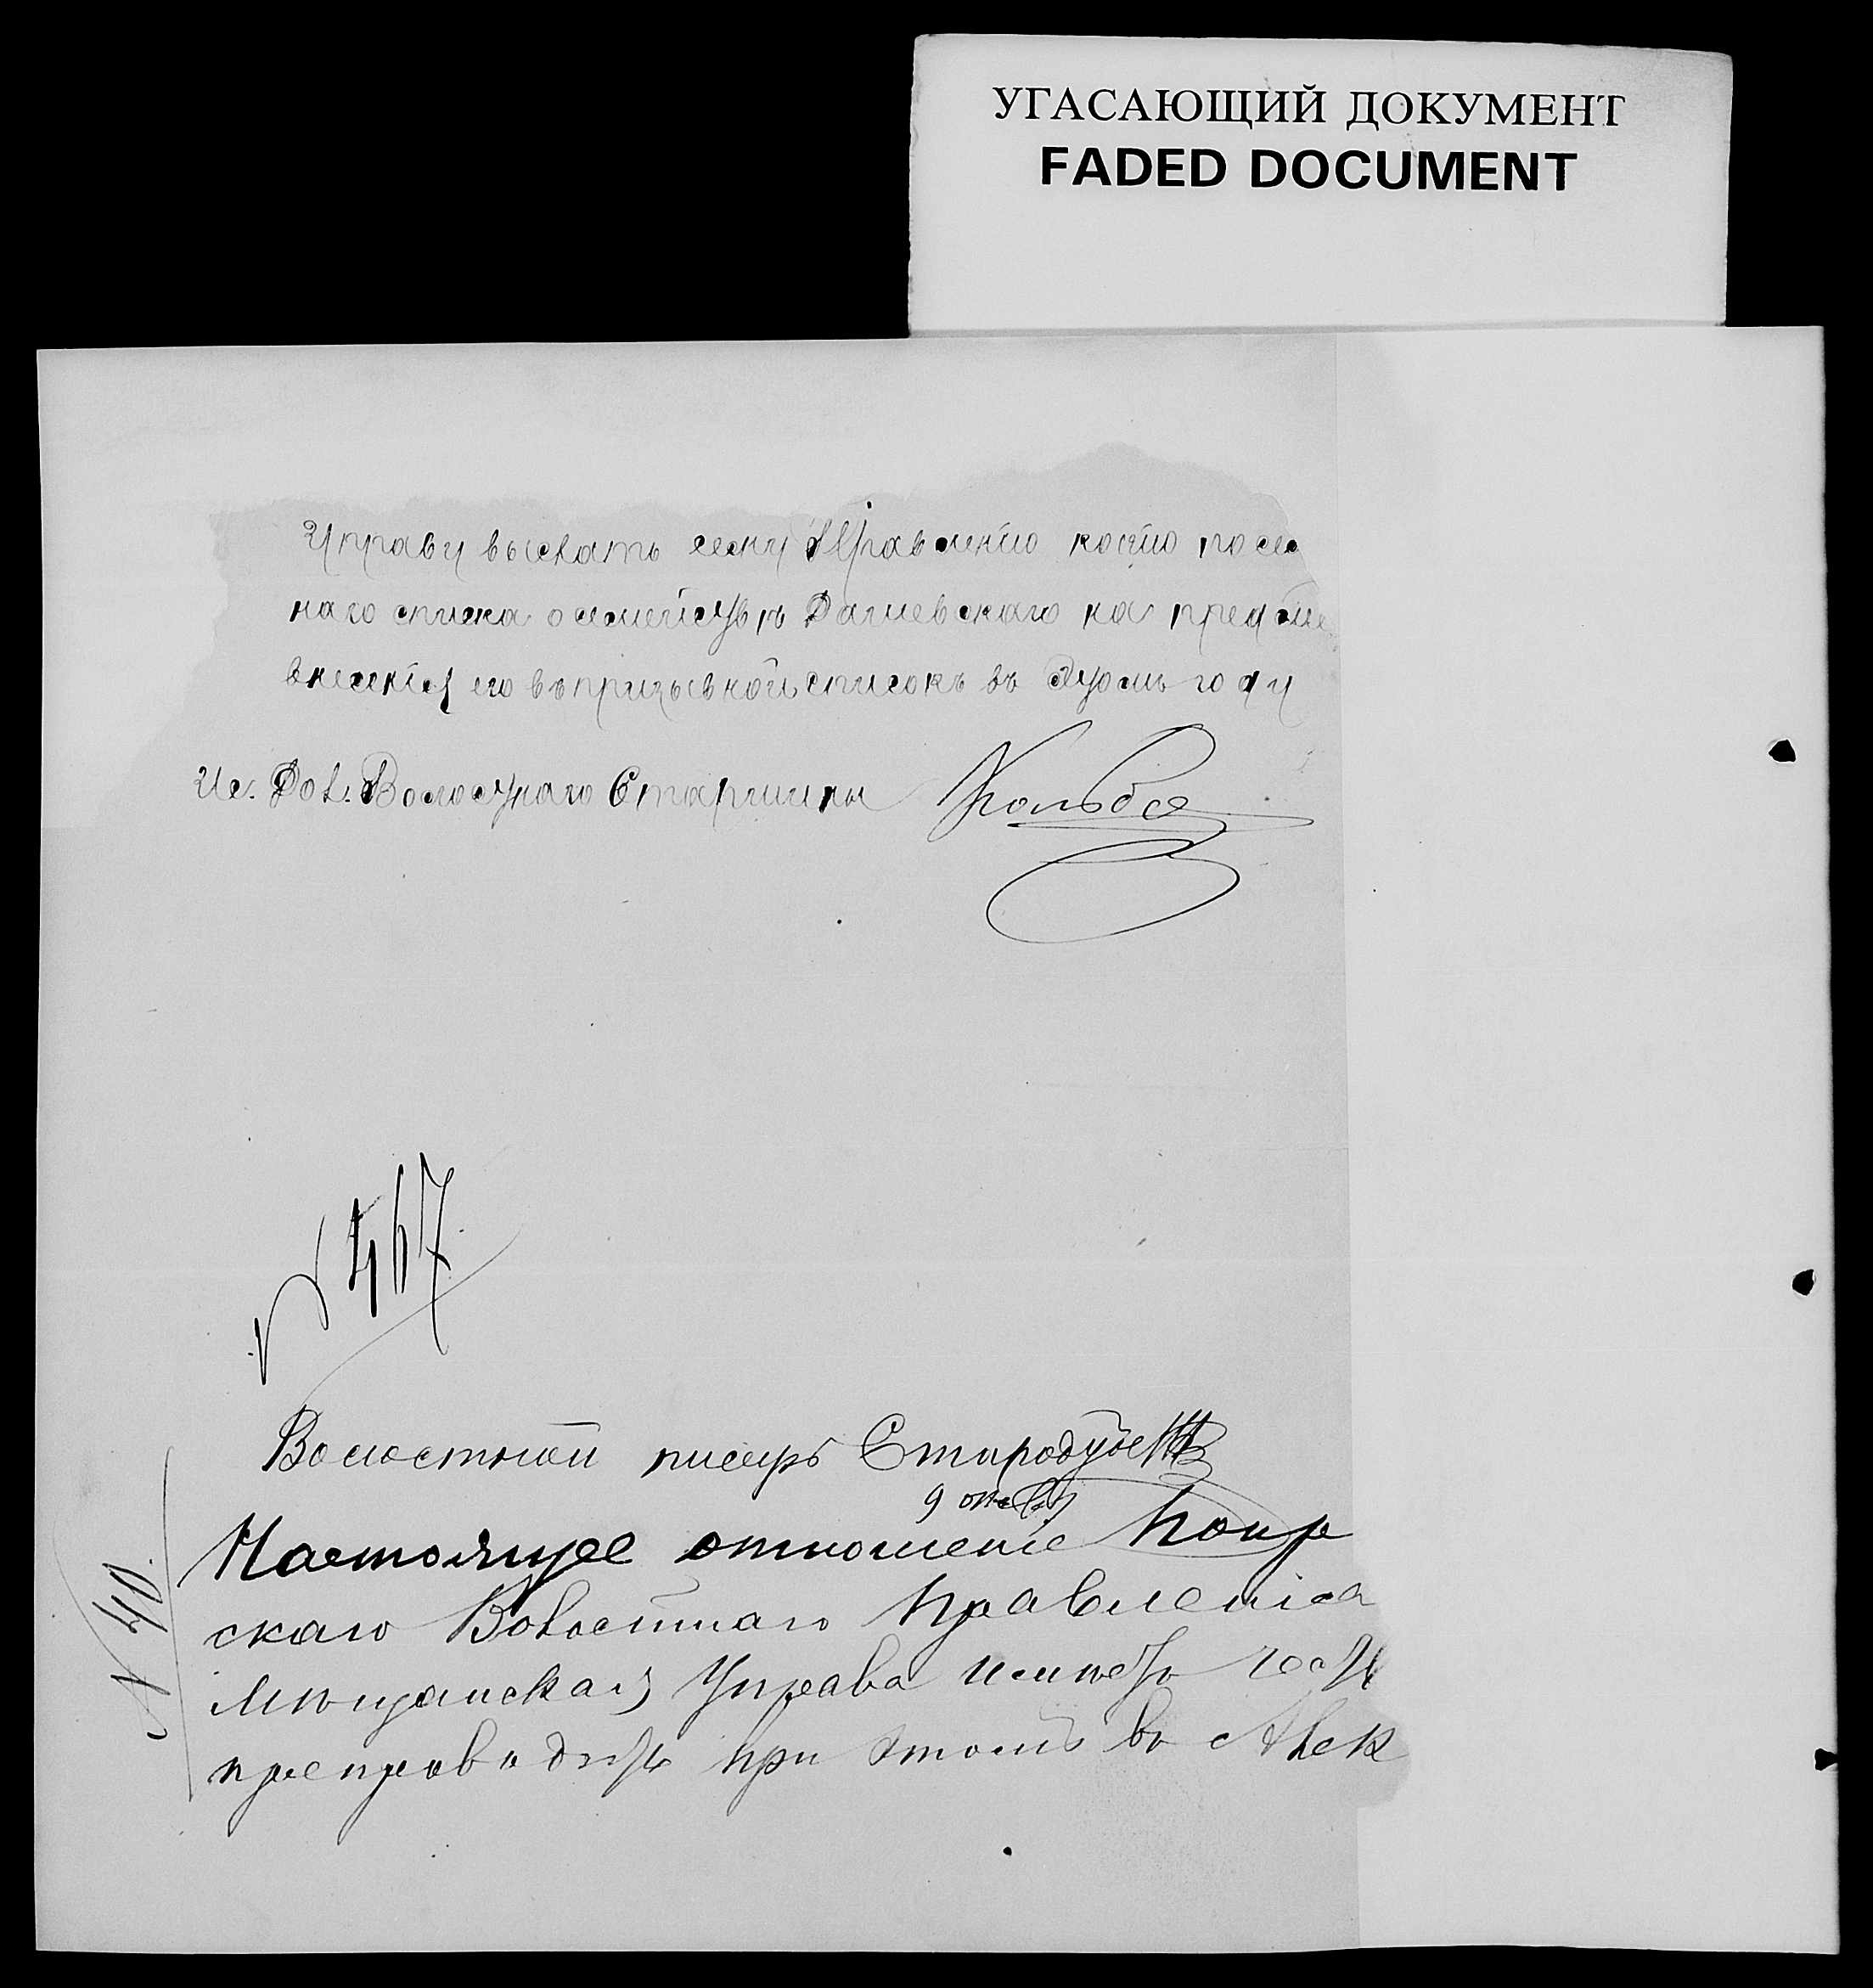 УГАСАЮЩИЙ ДОКУМЕНТ
FADED DOCUMENT
Управу выслать сему Правленію копію посе
наго списка о семействѣ Дашевскаго на предме
внесенія его въ призывной списокъ въ этомъ году
Ис. Дол. Волостнаго Старшины Кольбе
№ 467
Волостной писарь Стародубце
9 октяб
№ 40.
Настоящее отношеніе
скаго Волостнаго Правленія
Мѣщанская Управа имѣетъ честь
препроводить при этомъ въ Алек